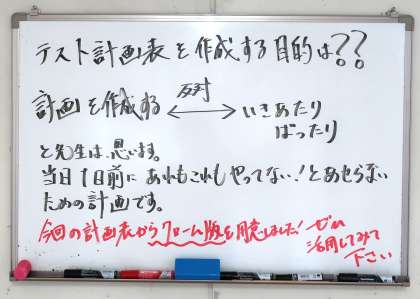 テスト計画表を作成する目的は??
計画を作成する ⟷ いきあたり
反対
ばったり
と先生は、思います。
当日1日前にあれもこれもやってない!とあせらない
ための計画です。
今回の計画表からクローム版を用意しました!ぜひ
活用してみて
下さい